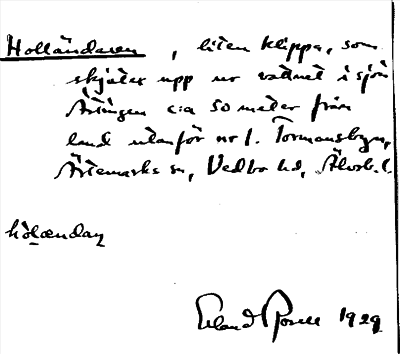 Holländaren, liten klippa, som
skjuter upp ur vattnet i sjön
Ärtingen c:a 50 meter från
land utanför nr 1. Tormansbyn,
Ärtemarks sn, Vedbo hd, Älvsb. l.
hòlændaṇ
Erland Rosell 1929